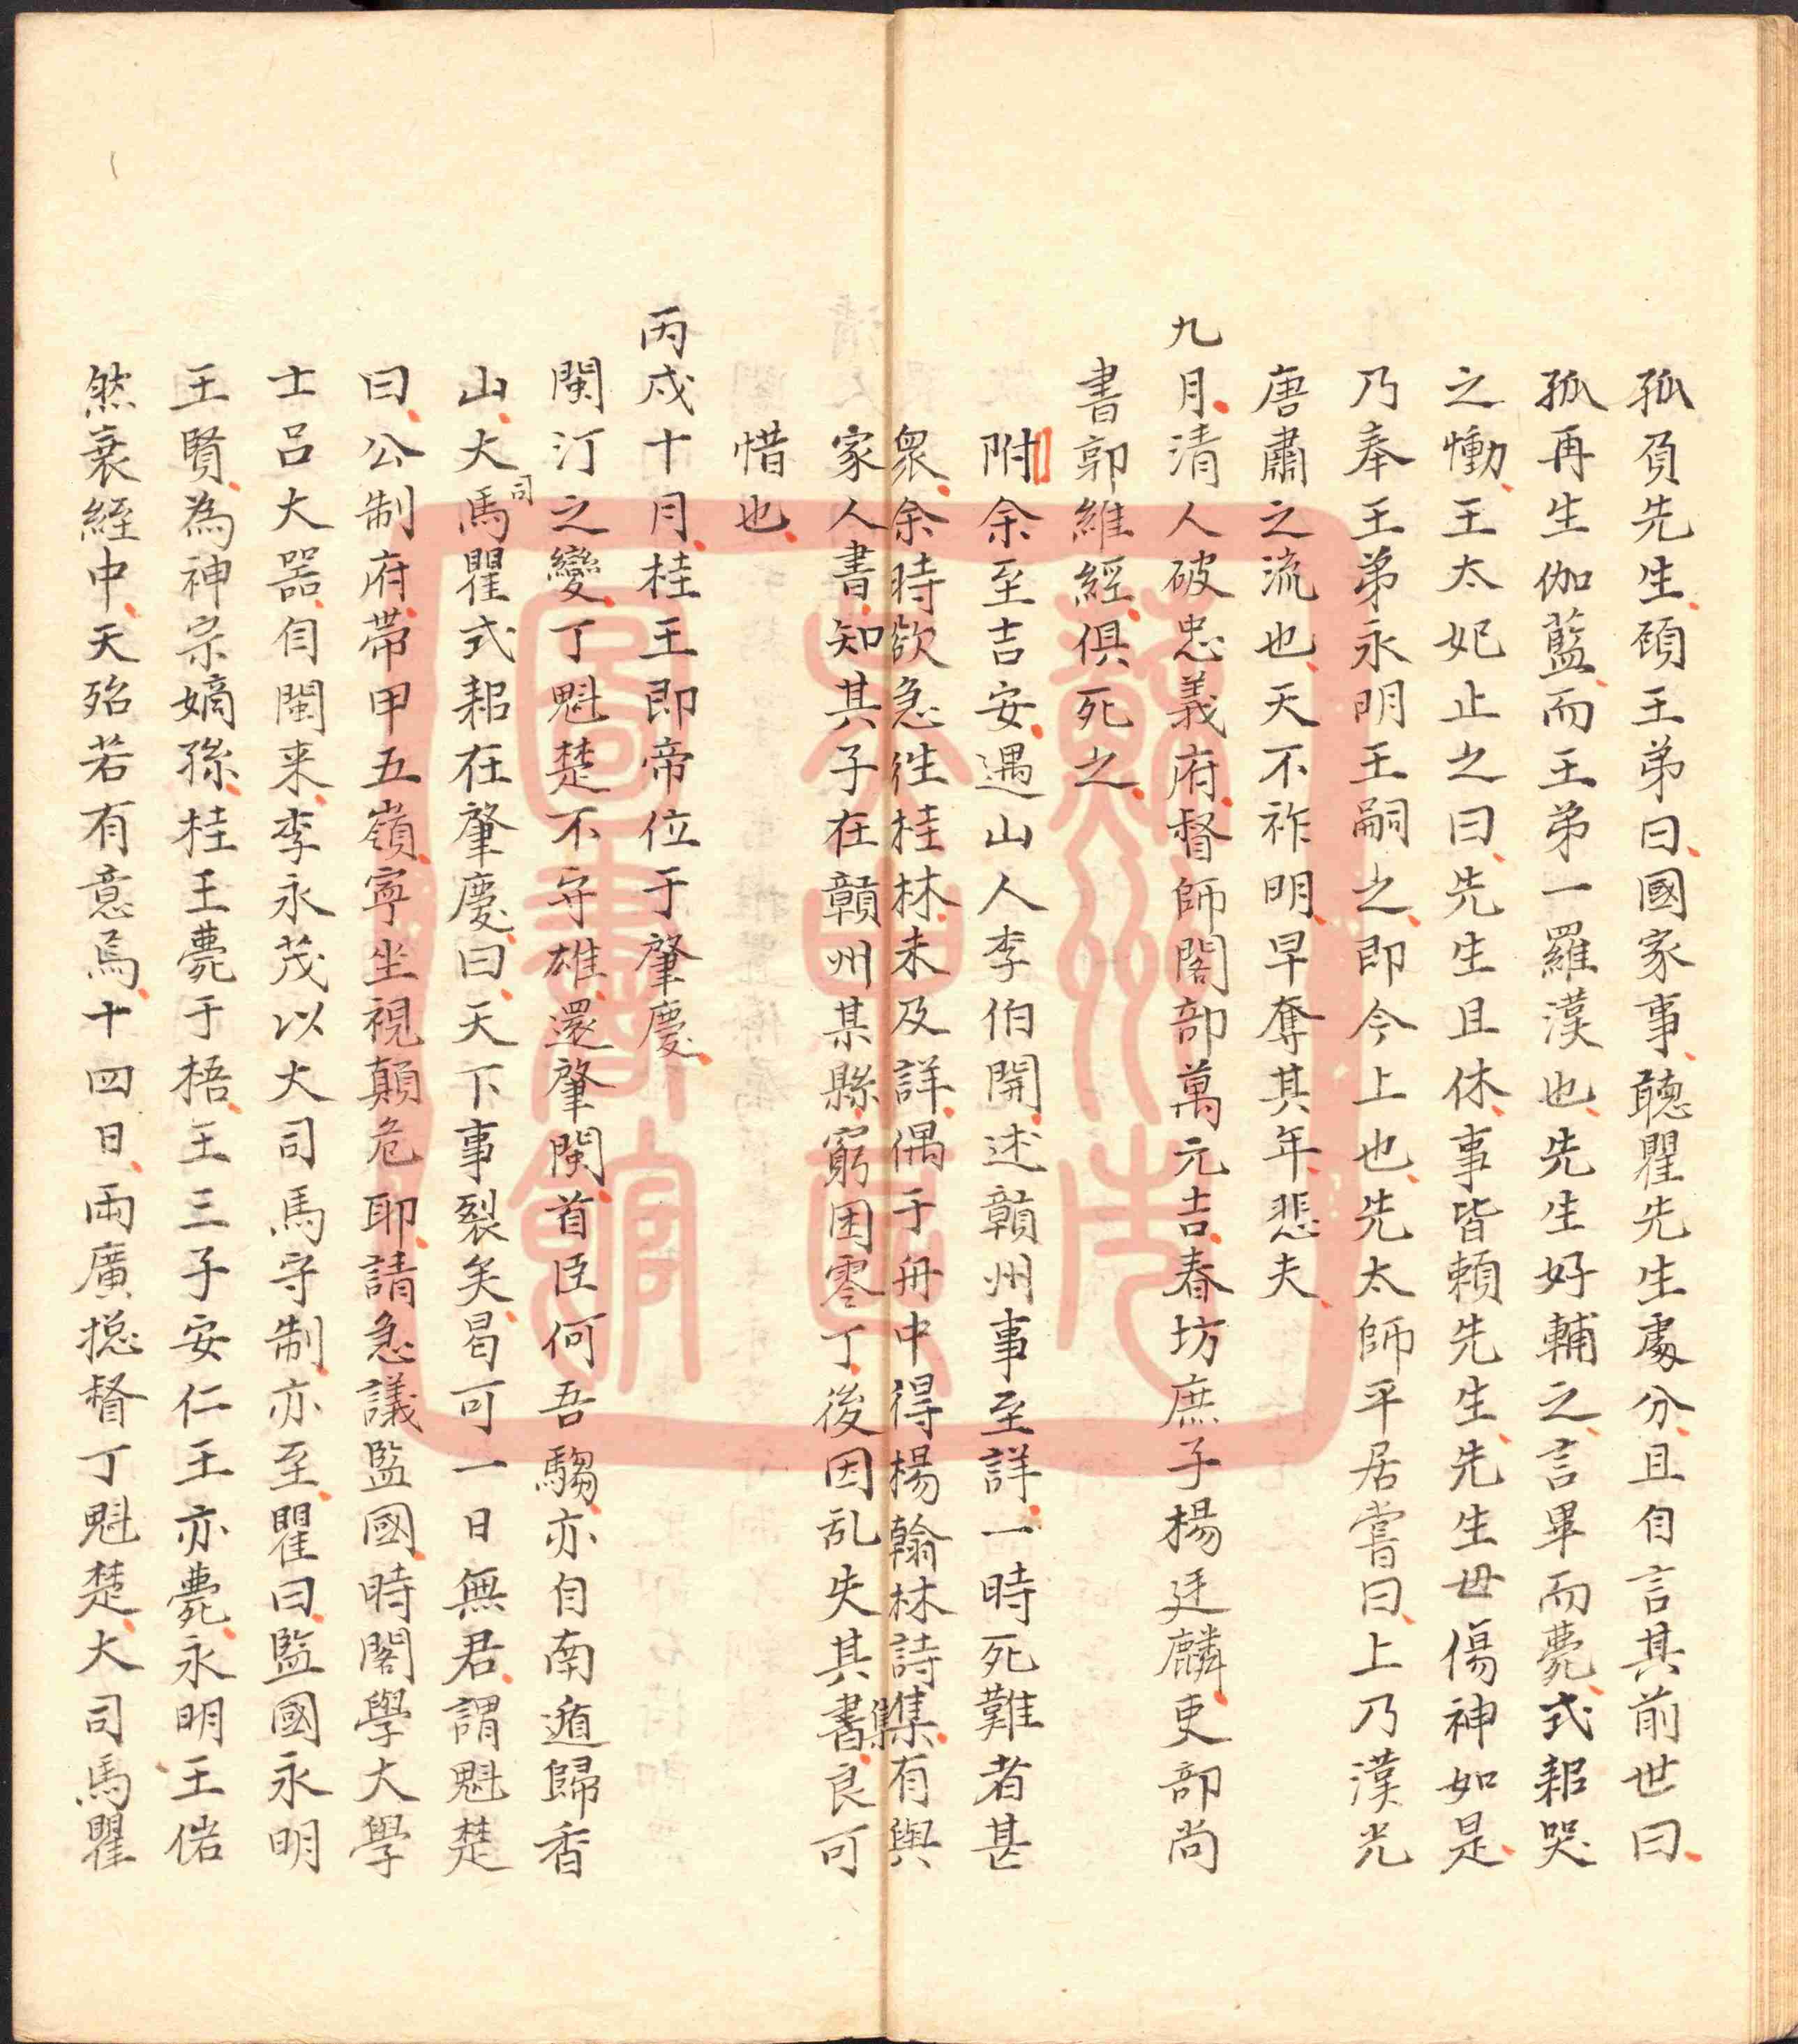 孤負先生顧王弟曰國家事聽瞿先生處分且自言其前世曰
孤再生伽藍而王弟一羅漢也先生好輔之言畢而薨式耜哭
之慟王太妃止之曰先生且休事皆賴先生先生毋傷神如是
乃奉王弟永明王嗣之即今上也先太師平居嘗曰上乃漢光
唐肅之流也天不祚明早奪其年悲夫
九月清人破忠義府督師閣部萬元吉春坊庶子楊廷麟吏部尚
書郭維經俱死之
附余至吉安遇山人李伯開述贛州事至詳一時死難者甚
衆余時欲急徃桂林未及詳偶于舟中得楊翰林詩集有與
家人書知其子在贛州某縣窮困零丁後因乱失其書集良可
惜也
丙戌十月桂王即帝位于肇慶
閩汀之變丁魁楚不守雄還肇閩首臣何吾騶亦自南遁歸香
山大司馬瞿式耜在肇慶曰天下事裂矣曷可一日無君謂魁楚
曰公制府帶甲五嶺寧坐視顛危耶請急議監國時閣學大學
士呂大器自閩来李永茂以大司馬守制亦至瞿曰監國永明
王賢為神宗嫡孫桂王薨于梧王三子安仁王亦薨永明王偌
然衰絰中天殆若有意焉十四日兩廣摠督丁魁楚大司馬瞿
蘇州市立圖書館